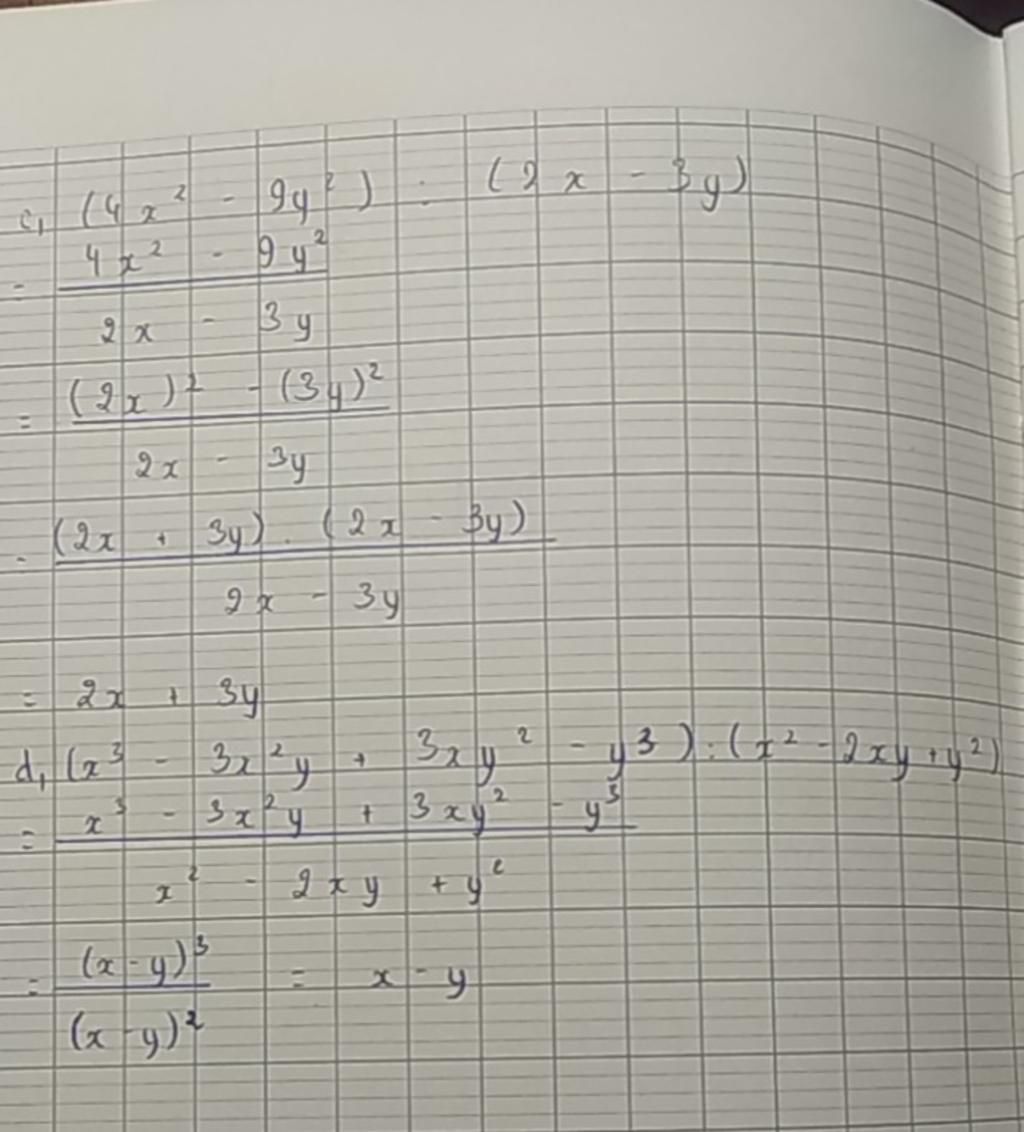 c, (4x² - 9y²) : (2x - 3y)
= (4x² - 9y²) / (2x - 3y)
= ((2x)² - (3y)²) / (2x - 3y)
= ((2x + 3y) . (2x - 3y)) / (2x - 3y)
= 2x + 3y
d, (x³ - 3x²y + 3xy² - y³) : (x² - 2xy + y²)
= (x³ - 3x²y + 3xy² - y³) / (x² - 2xy + y²)
= (x - y)³ / (x - y)² = x - y